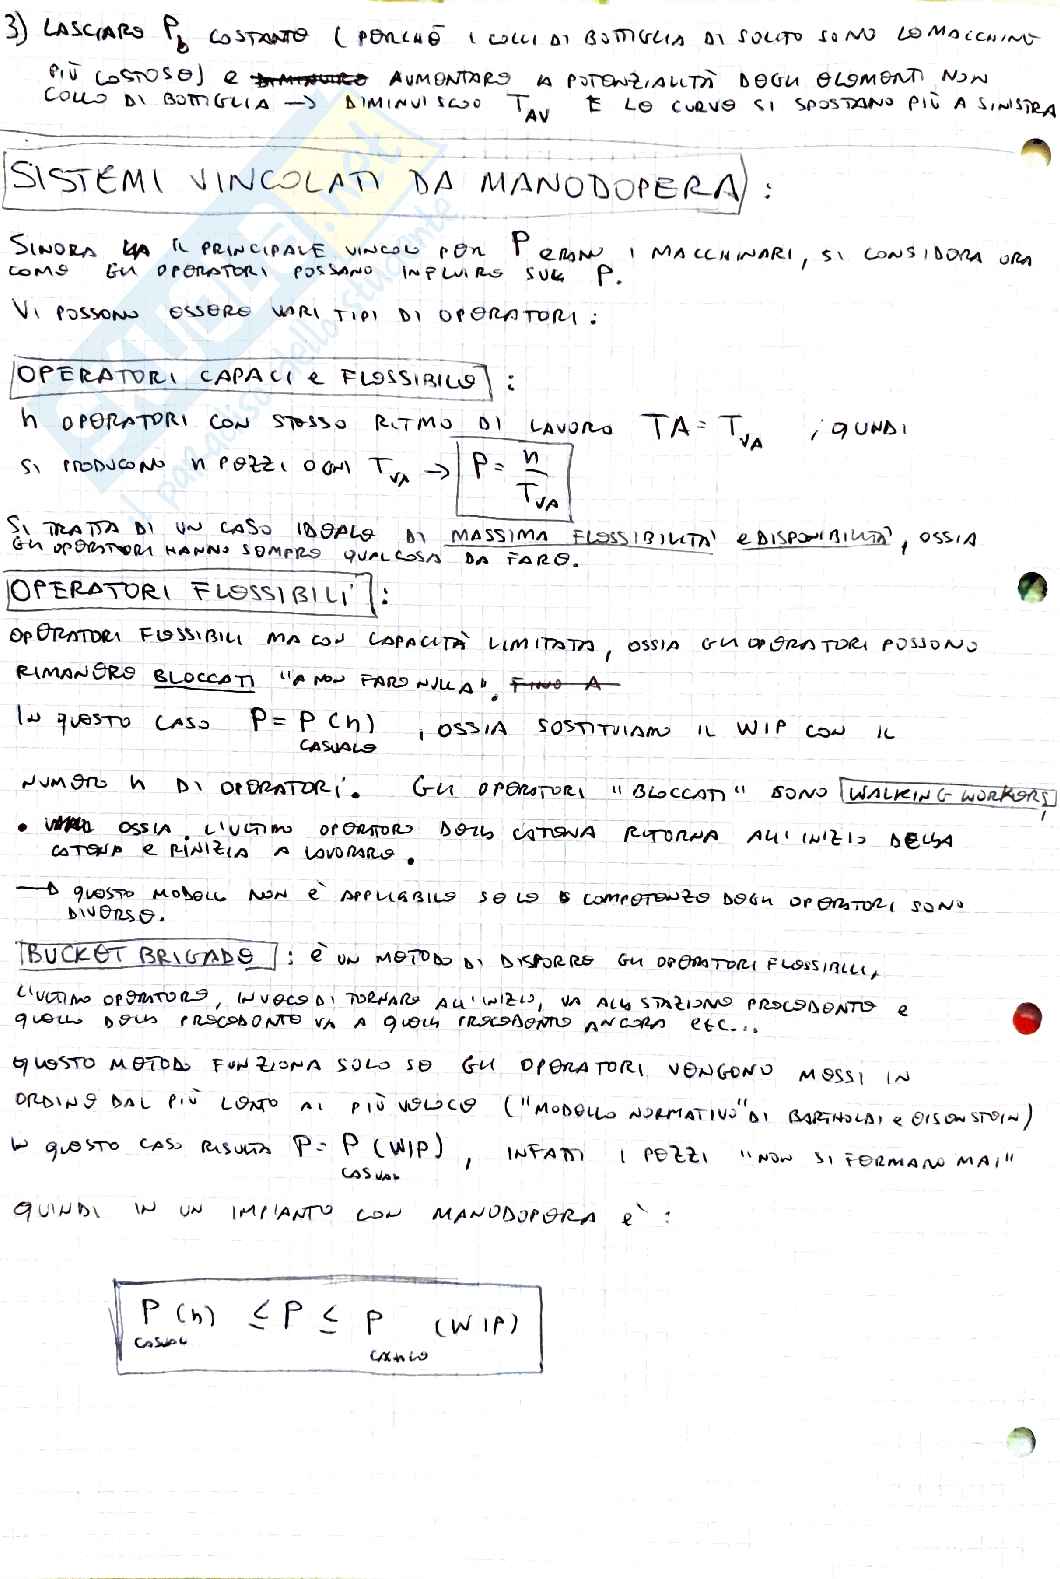 3) LASCIARE Pb COSTANTE (PERCHÈ I COLLI DI BOTTIGLIA DI SOLITO SONO LE MACCHINE
PIÙ COSTOSE) E DIMINUIRE AUMENTARE LA POTENZIALITÀ DEGLI ELEMENTI NON
COLLO DI BOTTIGLIA → DIMINUISCE TAV E LE CURVE SI SPOSTANO PIÙ A SINISTRA
SISTEMI VINCOLATI DA MANODOPERA:
SINORA IL PRINCIPALE VINCOLO PER P ERANO I MACCHINARI, SI CONSIDERA ORA
COME GLI OPERATORI POSSANO INFLUIRE SULLA P.
VI POSSONO ESSERE VARI TIPI DI OPERATORI:
OPERATORI CAPACI e FLESSIBILE:
n OPERATORI CON STESSO RITMO DI LAVORO TA = TVA, QUNDI
SI PRODUCONO n PEZZI OGNI TVA → P = n / TVA
SI TRATTA DI UN CASO IDEALE DI MASSIMA FLESSIBILITÀ e DISPONIBILITÀ, OSSIA
GLI OPERATORI HANNO SEMPRE QUALCOSA DA FARE.
OPERATORI FLESSIBILI:
OPERATORI FLESSIBILI MA CON CAPACITÀ LIMITATA, OSSIA GLI OPERATORI POSSONO
RIMANERE BLOCCATI "A NON FARE NULLA". FINO A
IN QUESTO CASO P = P (n), OSSIA SOSTITUIAMO IL WIP CON IL
CASUALE
NUMERO n DI OPERATORI. GLI OPERATORI "BLOCCATI" SONO WALKING WORKERS,
• OSSIA L'ULTIMO OPERATORE DELLA CATENA RITORNA ALL'INIZIO DELLA
CATENA E RINIZIA A LAVORARE.
→ QUESTO MODELL NON È APPLICABILE SE LE COMPETENZE DEGLI OPERATORI SONO
DIVERSE.
BUCKET BRIGADE: È UN METODO DI DISPORRE GLI OPERATORI FLESSIBILI,
L'ULTIMO OPERATORE, INVECE DI TORNARE ALL'INIZIO, VA ALLA STAZIONE PRECEDENTE E
QUELLO DELLA PRECEDENTE VA A QUELLA PRECEDENTE ANCORA ETC...
QUESTO METODO FUNZIONA SOLO SE GLI OPERATORI VENGONO MESSI IN
ORDINE DAL PIÙ LENTO AL PIÙ VELOCE ("MODELLO NORMATIVO" DI BARTHOLDI e EISENSTEIN)
IN QUESTO CASO RISULTA P = P (WIP), INFATTI I PEZZI "NON SI FERMANO MAI"
CASUAL
QUINDI IN UN IMPIANTO CON MANODOPERA È:
P (n) ≤ P ≤ P (WIP)
CASUAL